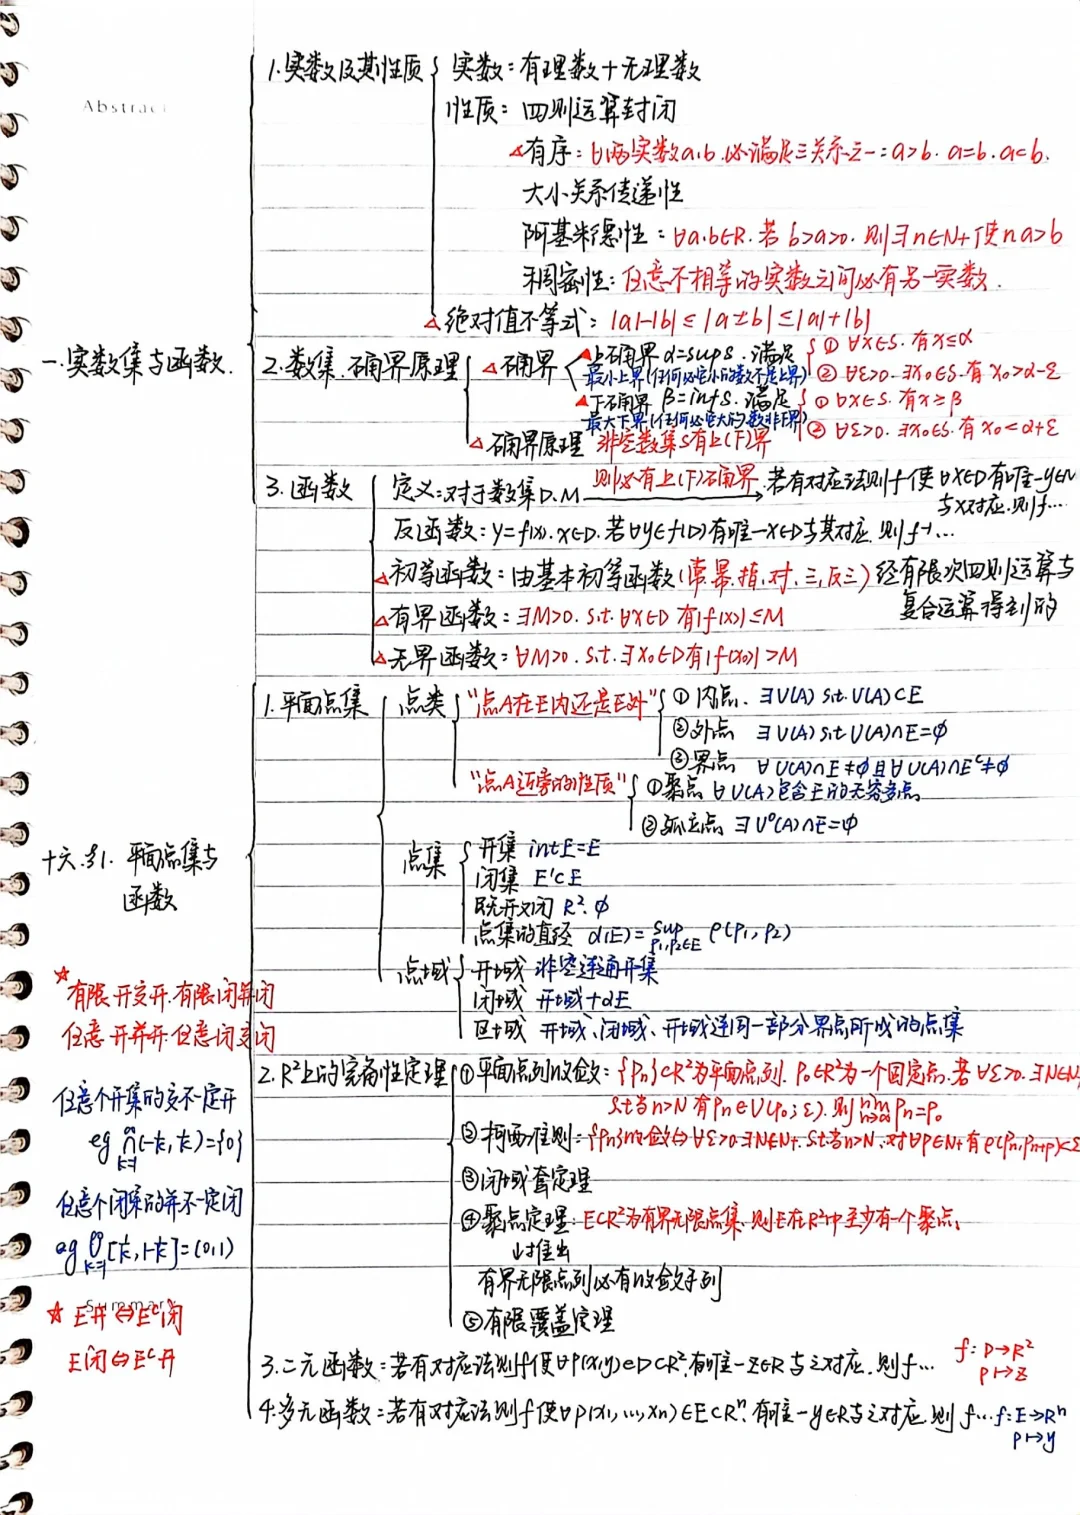 Abstract
一.实数集与函数.
1.实数及其性质
实数:有理数+无理数
性质:四则运算封闭
△有序:∀两实数a.b.必满足三关系之一:a>b. a=b. a<b.
大小关系传递性
阿基米德性:∀a.b∈R.若b>a>0.则∃n∈N+使na>b
稠密性:任意不相等的实数之间必有另一实数.
△绝对值不等式:|a|-|b|≤|a±b|≤|a|+|b|
2.数集.确界原理
△确界
▲上确界α=supS.满足
最小上界(任何比它小的数不是上界)
①∀x∈S.有x≤α
②∀ε>0.∃x₀∈S.有x₀>α-ε
▲下确界β=infS.满足
最大下界(任何比它大的数非下界)
①∀x∈S.有x≥β
②∀ε>0.∃x₀∈S.有x₀<α+ε
△确界原理 非空数集S有上(下)界
则必有上(下)确界
3.函数
定义:对于数集D.M 若有对应法则f使∀x∈D有唯一y∈M
与x对应.则f…
反函数:y=f(x).x∈D.若∀y∈f(D)有唯一x∈D与其对应.则f⁻¹…
△初等函数:由基本初等函数(常.幂.指.对.三.反三)经有限次四则运算与
复合运算得到的
△有界函数:∃M>0.s.t.∀x∈D有|f(x)|≤M
△无界函数:∀M>0.s.t.∃x₀∈D有|f(x₀)|>M
十六.§1.平面点集与
函数
1.平面点集
点类
"点A在E内还是E外"
①内点.∃U(A) s.t.U(A)⊂E
②外点 ∃U(A) s.t U(A)∩E=∅
③界点 ∀U(A)∩E≠∅且∀U(A)∩Eᶜ≠∅
"点A近旁的性质"
①聚点 ∀U(A)包含E的无穷多点
②孤立点 ∃U⁰(A)∩E=∅
点集
开集 intE=E
闭集 E'⊂E
既开又闭 R².∅
点集的直径 d(E)=sup ρ(P₁,P₂)
P₁,P₂∈E
点域
开域 非空连通开集
闭域 开域+∂E
区域 开域、闭域、开域连同一部分界点所成的点集
☆
有限开交开.有限闭并闭
任意开并开.任意闭交闭
任意个开集的交不一定开
eg ∞∩k=1(-1/k,1/k)={0}
任意个闭集的并不一定闭
eg ∞∪k=1[1/k,1-1/k]=(0,1)
Summary
☆ E开⇔Eᶜ闭
E闭⇔Eᶜ开
2.R²上的完备性定理
①平面点列收敛:{Pn}⊂R²为平面点列.P₀∈R²为一个固定点.若∀ε>0.∃N∈N+
s.t当n>N有Pn∈U(P₀;ε).则lim n→∞ Pn=P₀
②柯西准则:{Pn}收敛⇔∀ε>0.∃N∈N+.s.t当n>N.对∀P∈N+有ρ(Pn,Pn+p)<ε
③闭域套定理
④聚点定理:E⊂R²为有界无限点集.则E在R²中至少有一个聚点.
↓推出
有界无限点列必有收敛子列
⑤有限覆盖定理
3.二元函数:若有对应法则f使∀P(x,y)∈D⊂R².有唯一z∈R与之对应.则f…
f:D→R²
P↦z
4.多元函数:若有对应法则f使∀P(x1,…,xn)∈E⊂Rⁿ.有唯一y∈R与之对应.则f…
f:E→Rⁿ
P↦y